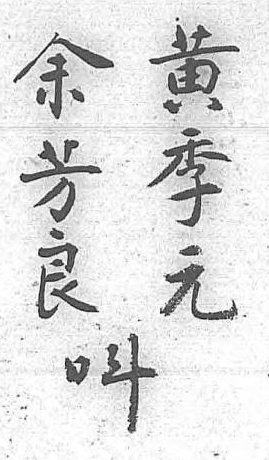 黄季元
余芳良
呌